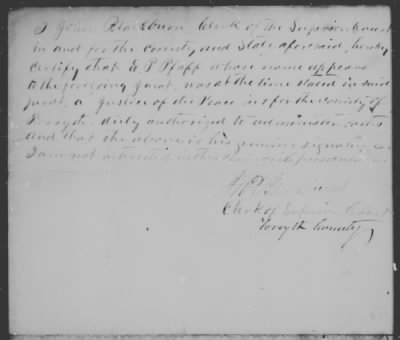 I John Blackburn Clerk of the Superior Court
in and for the county and State aforesaid, hereby
certify that E P Pfaff whose name appears
to the foregoing Jurat, was at the time stated in said
Jurat, a Justice of the Peace in & for the County of
Forsyth duly authorized to administer oaths
and that the above is his genuine signature.
I am not interested in this
Clerk of Superior Court
Forsyth County